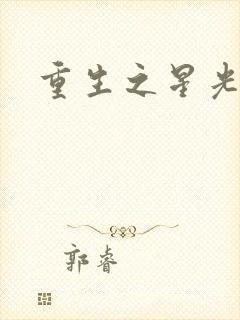 重生之星光
郭睿